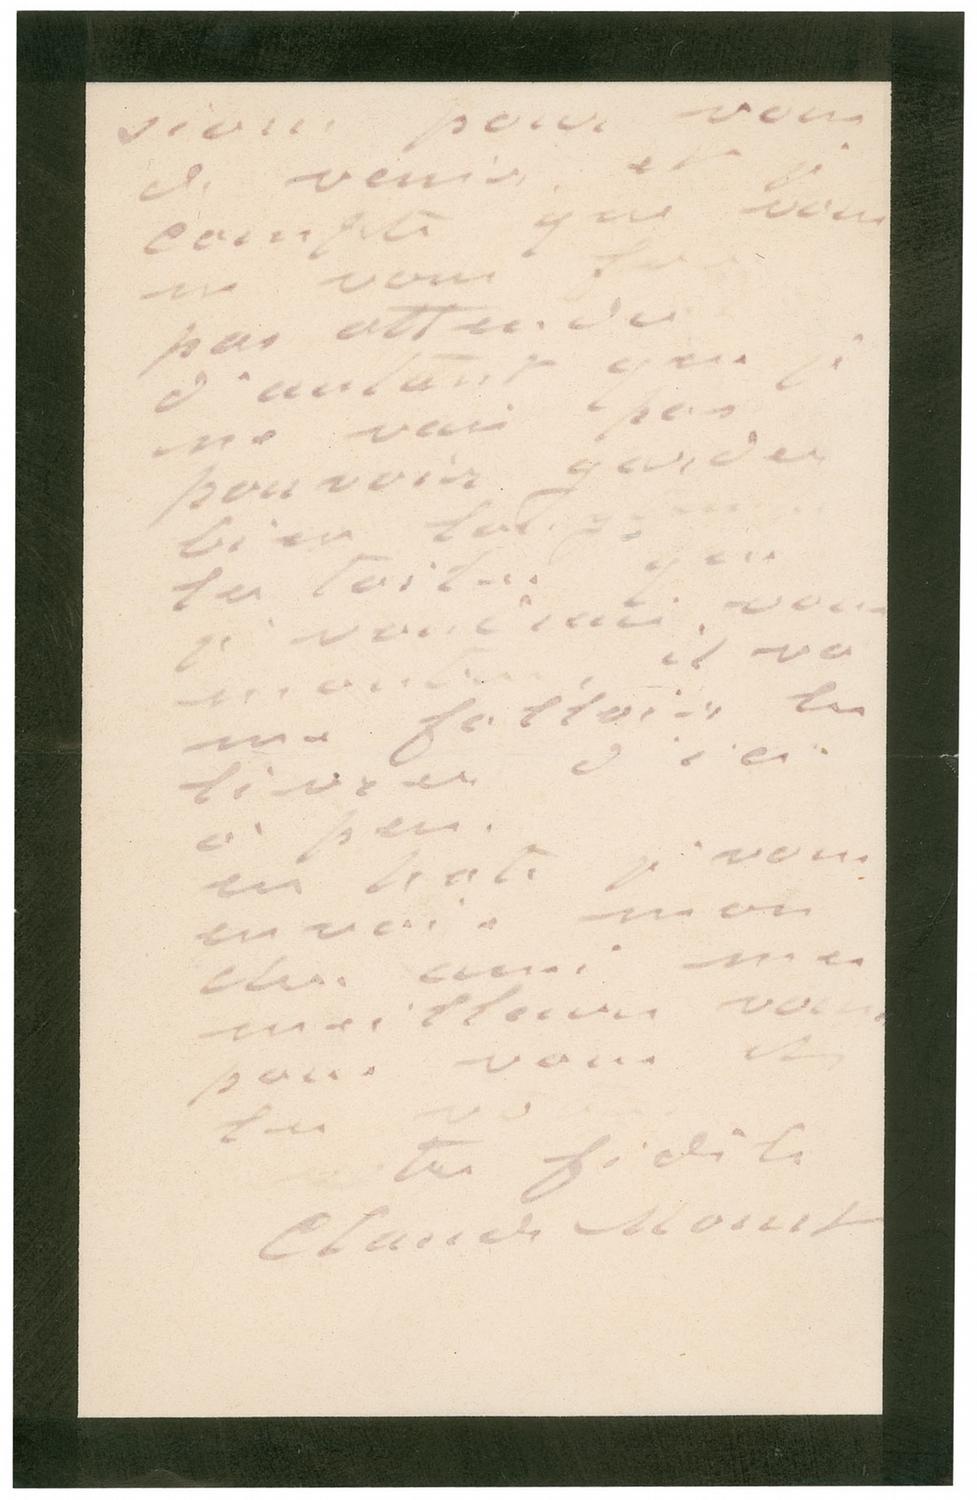 sion pour vous
de venir, et je
compte que vous
ne vous ferez
pas attendre
d'autant que je
ne vais pas
pouvoir garder
bien
les toiles que
je voudrais vous
montrer, il va
me falloir les
livrer d'ici
à peu.
en hate je vous
envoie mon
cher ami mes
meilleurs vœux
pour vous et
les vôtres.
tres fidèle
Claude Monet